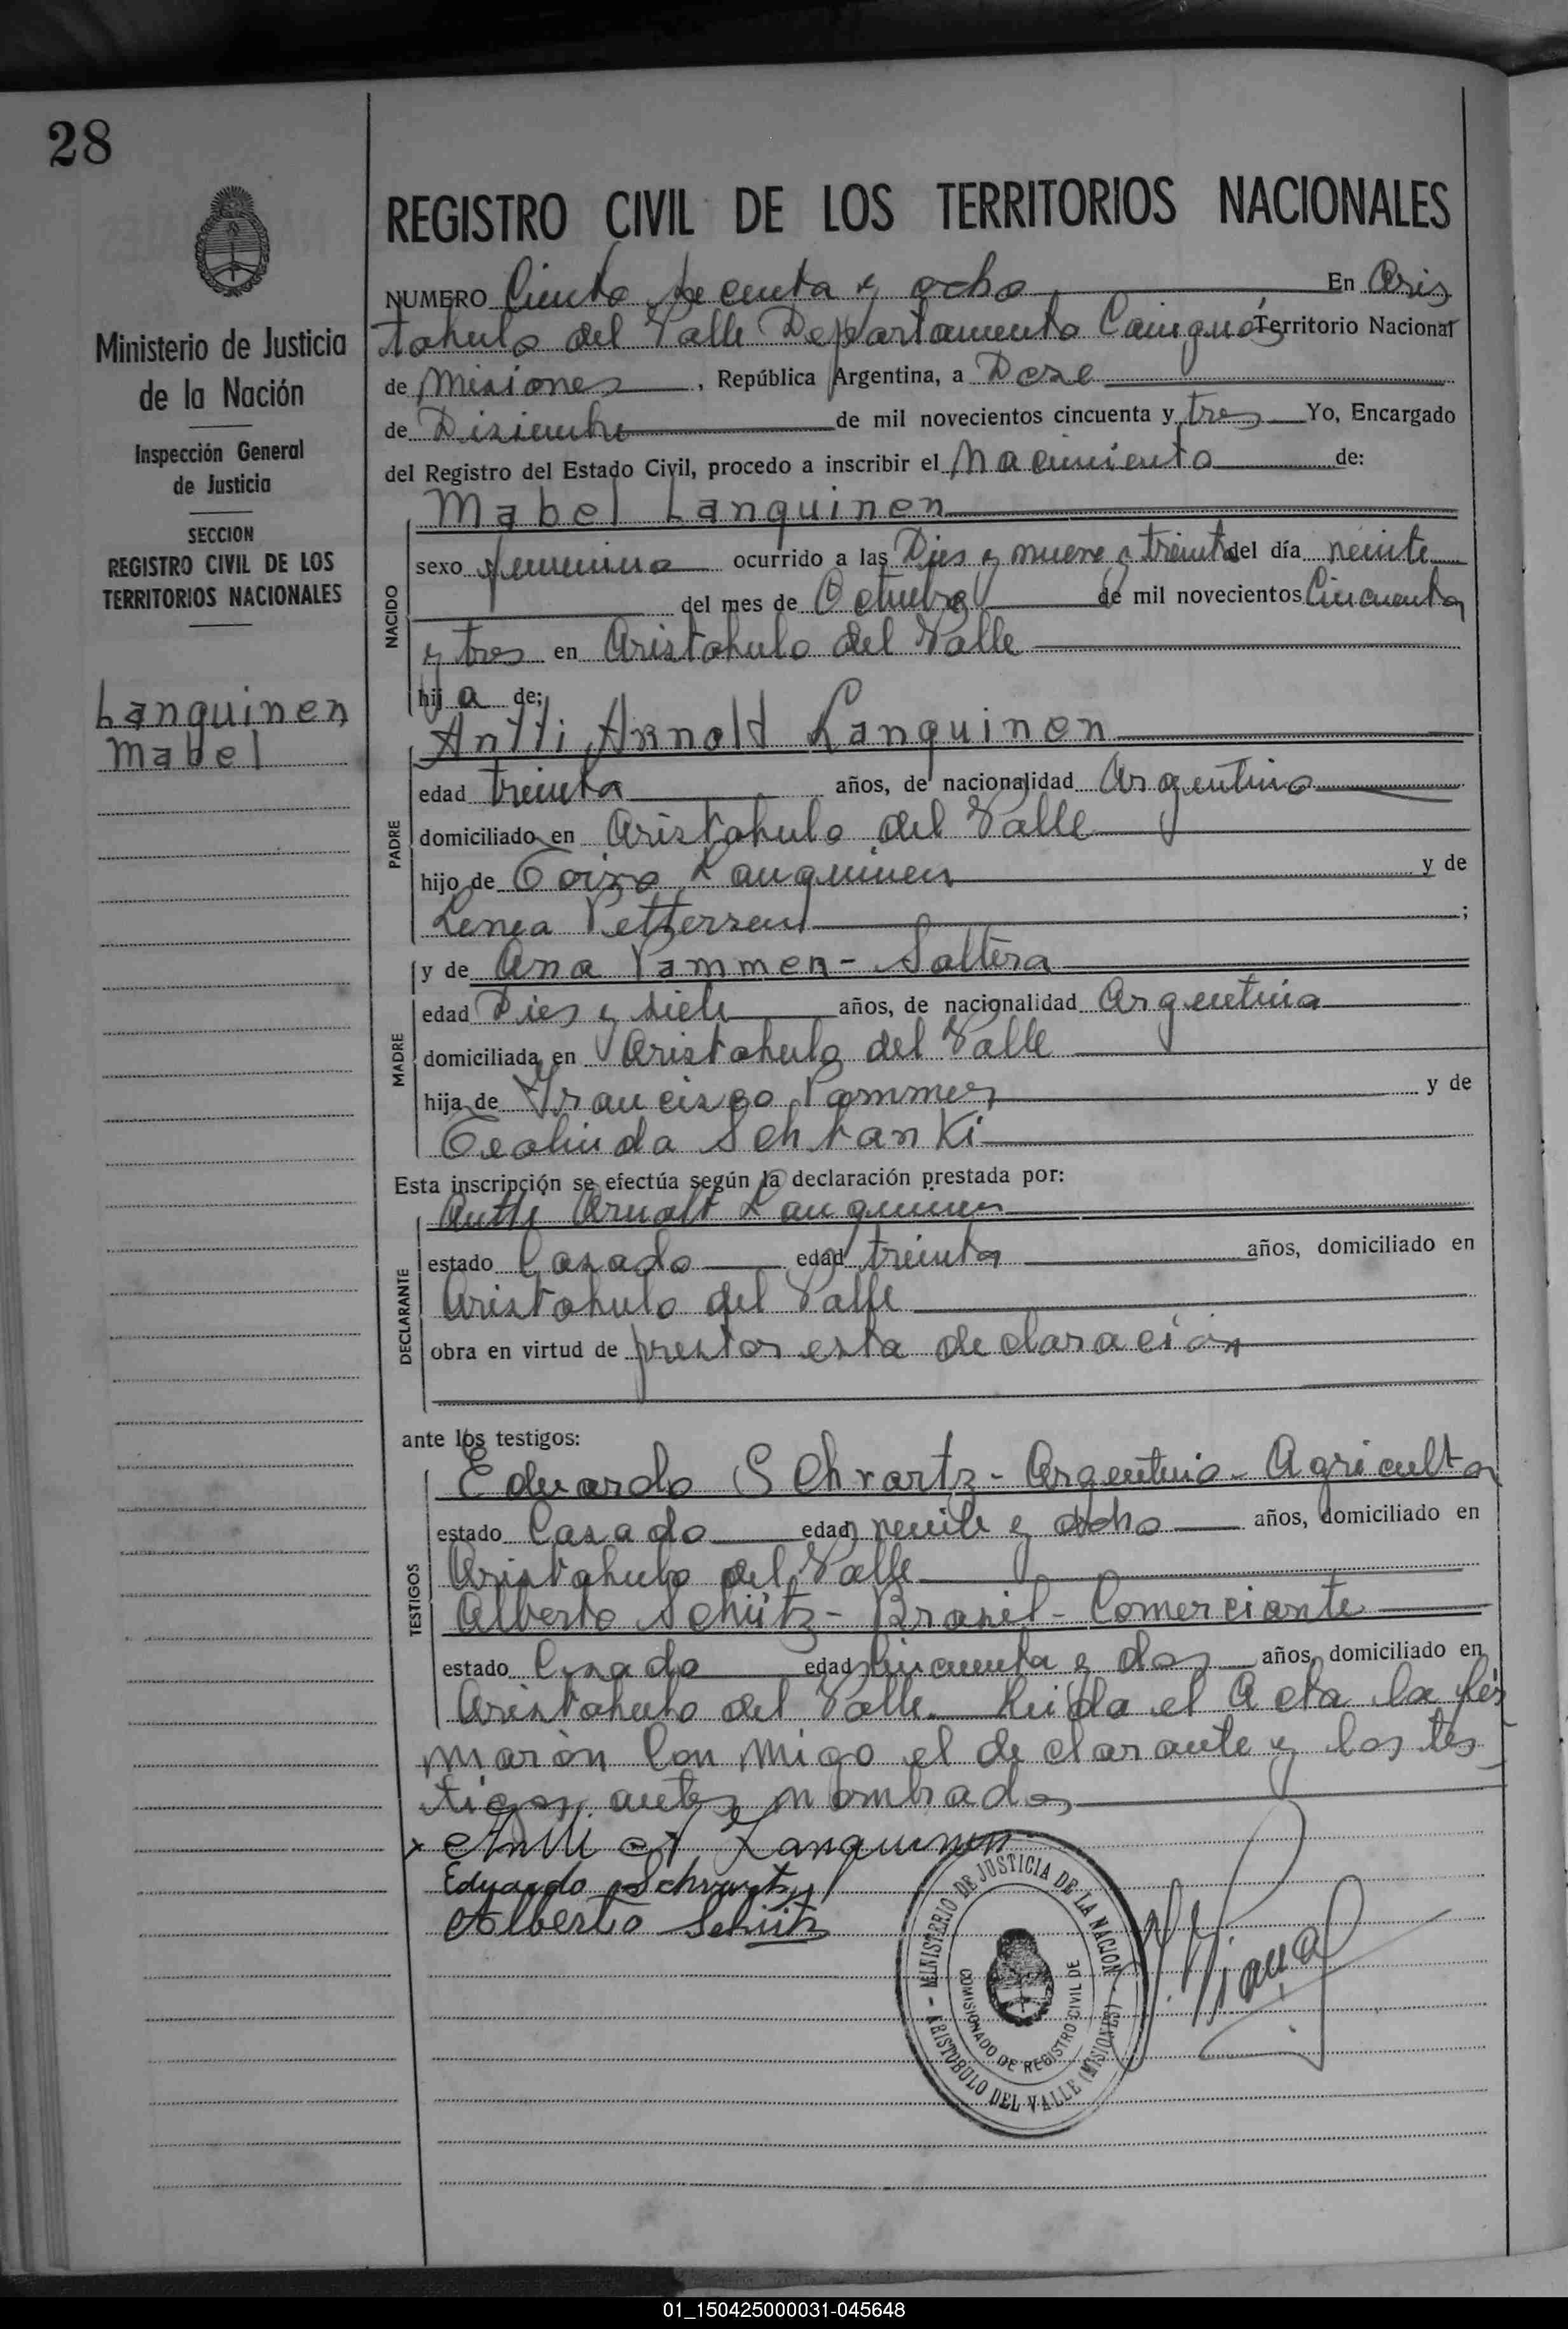 28
Ministerio de Justicia
de la Nación
Inspección General
de Justicia
SECCION
REGISTRO CIVIL DE LOS
TERRITORIOS NACIONALES
Languinen
Mabel
REGISTRO CIVIL DE LOS TERRITORIOS NACIONALES
NUMERO Ciento y ocho En Aris
tobulo del Valle Departamento Cainguás Territorio Nacional
de Misiones, República Argentina, a Doze
de Disiembre de mil novecientos cincuenta y tres Yo, Encargado
del Registro del Estado Civil, procedo a inscribir el Nacimiento de:
NACIDO
Mabel Languinen
sexo femenino ocurrido a las Dies y nueve y treinta del día veinte
del mes de Octubre de mil novecientos Cincuenta
y tres en Aristobulo del Valle
hij a de:
PADRE
Antti Arnold Languinen
edad treinta años, de nacionalidad Argentino
domiciliado en Aristobulo del Valle
hijo de Toivo Languinen y de
Lenea Petterson;
MADRE
y de Ana Pammer - Soltera
edad Dies y siete años, de nacionalidad Argentina
domiciliada en Aristobulo del Valle
hija de Francisco Pammer y de
Teolinda Schtanki
Esta inscripción se efectúa según la declaración prestada por:
DECLARANTE
Antti Arnolt Languinen
estado Casado edad treinta años, domiciliado en
Aristobulo del Valle
obra en virtud de prestar esta declaración
ante los testigos:
TESTIGOS
Eduardo Schvartz - Argentino - Agricultor
estado Casado edad veinte y ocho años, domiciliado en
Aristobulo del Valle
Alberto Schütz - Brasil - Comerciante
estado Casado edad Cincuenta y dos años, domiciliado en
Aristobulo del Valle. Leida el Acta la fir
marón Con migo el declarante y los tes
tigos antes nombrados
x Antti A Languinen
Eduardo Schvartz
Alberto Schütz
MINISTERIO DE JUSTICIA DE LA NACION
COMISIONADO DE REGISTRO CIVIL DE
ARISTOBULO DEL VALLE (MISIONES)
01_150425000031-045648